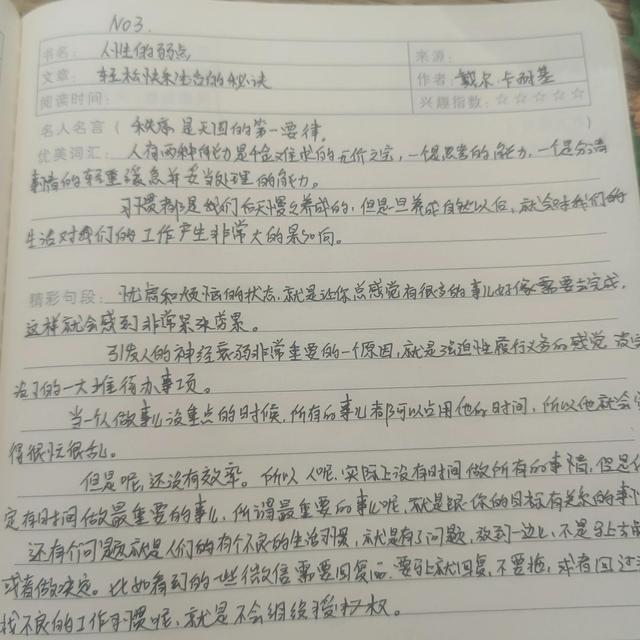 No3.
书名: 人性的弱点 来源:
文章: 轻松快乐生活的秘诀 作者: 戴尔.卡耐基
阅读时间: 兴趣指数: ☆☆☆☆☆
名人名言 ( 秩序是天国的第一要律。
优美词汇: 人有两种能力是千金难求的无价之宝,一个是思考的能力,一个是分清
事情的轻重缓急并妥当处理的能力。
习惯都是我们后天慢慢养成的,但是一旦养成自然以后,就会对我们的
生活对我们的工作产生非常大的影响。
精彩句段: 忧虑和烦恼的状态,就是让你总感觉有很多的事儿好像需要去完成,
这样就会感到非常紧张劳累。
引发人的神经衰弱非常重要的一个原因,就是强迫性履行义务的感觉
的一大堆待办事项。
当一个人做事儿没重点的时候,所有的事儿都可以占用他的时间,所以他就会
得很忙很乱。
但是呢,还没有效率。所以人呢,实际上没有时间做所有的事情,但是
定有时间做最重要的事儿,所谓最重要的事儿呢,就是跟你的目标有关系的事
还有个问题就是人们的有个不良的生活习惯,就是有了问题,放到一边儿,不是马上去
或者做决定。比如看到的一些微信需要回复的,要马上就回复,不要拖,或者
找不良的工作习惯呢,就是不会组织授权权。